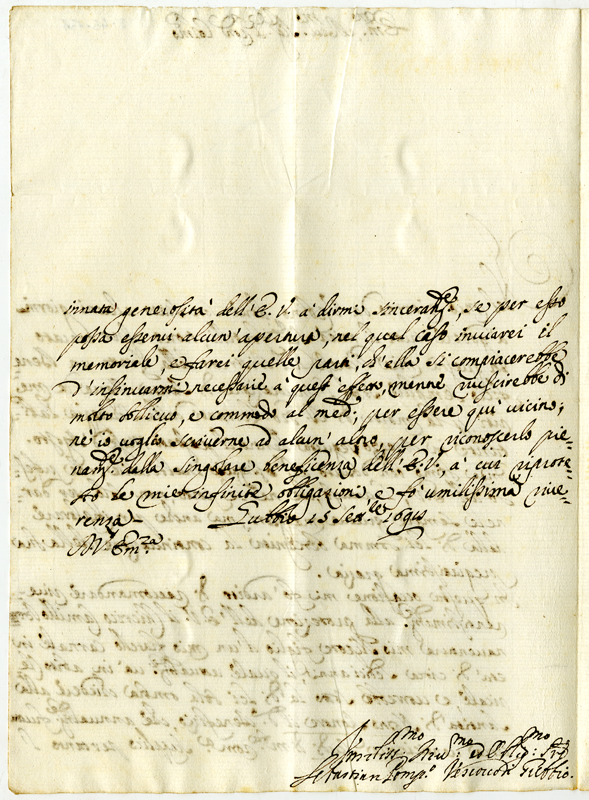 innata generosità dell'E. V. à dirmi sinceram.te, se per esso
possa esservi alcun'apertura, nel qual caso inviarei il
memoriale, e farei quelle parti, ch'ella si compiacerebbe
d'insinuarmi necessarie à quest'effetto, mentre riuscirebbe di
molto sollievo, e commodo al med.o, per essere qui vicino;
nè io voglio scriverne ad alcun'altro, per riconoscerlo pie-
nam.te dalla singolare beneficenza dell'E. V., a cui riprote-
sto le mie infinite obligazioni, e fò umilissima rive-
renza. Gubbio 15 Sett.bre
Em.za
Sebastian Vescovo di Gubbio.